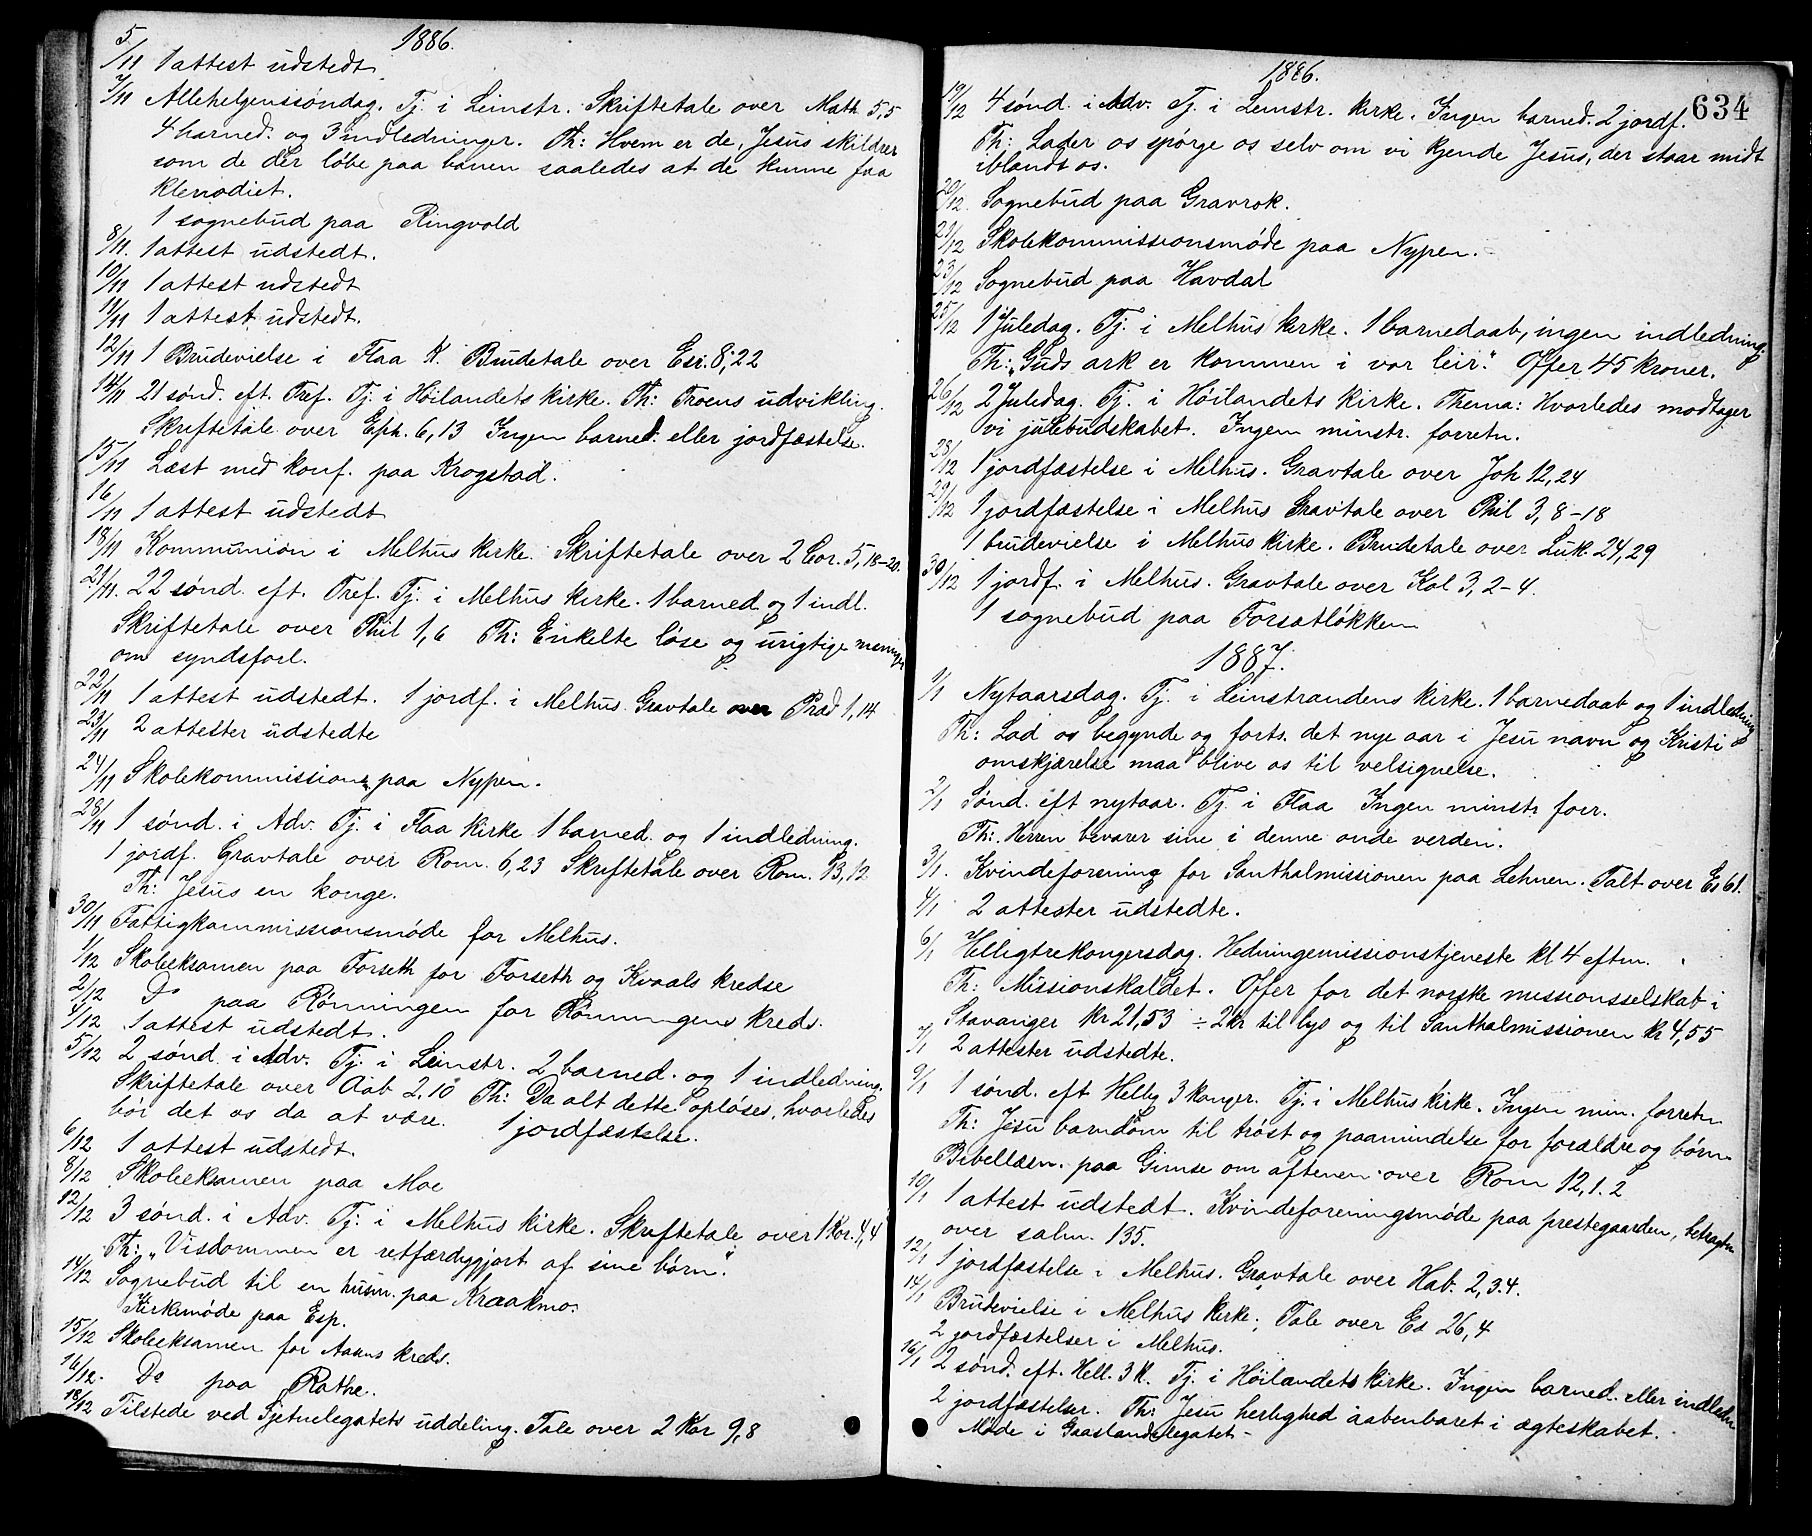 1886.
5/11 1 attest udstedt.
7/11 Allehelgenssøndag. Tj. i Leinstr. Skriftetale over Math 5,5
4 barned. og 3 indledninger. Th: Hvem er de, Jesus skildrer
som de der løbe paa banen saaledes at de kunne faa
klenodiet.
1 sognebud paa Ringvold
8/11. 1 attest udstedt.
10/11 1 attest udstedt
11/11 1 attest udstedt.
12/11 1 Brudevielse i Flaa K. Brudetale over Esr. 8,22
14/11 21 sønd. eft. Tref. Tj. i Höilandets kirke. Th: Troens udvikling.
Skriftetale over Eph. 6,13 Ingen barned. eller jordfæstelse.
15/11 Læst med konf. paa Krogstad.
16/11 1 attest udstedt
18/11 Kommunion i Melhus kirke. Skriftetale over 2 Cor. 5,18-20.
21/11. 22 sønd. eft. Tref. Tj. i Melhus kirke. 1 barned og 1 indl.
Skriftetale over Phil 1,6 Th: Enkelte løse og urigtige meninger
om syndsforl.
22/11 1 attest udstedt. 1 jordf. i Melhus. Gravtale over Præd 1,14
23/11 2 attester udstedte
24/11 Skolekommission paa Nypen.
28/11 1 sønd. i Adv. Tj. i Flaa kirke 1 barned. og 1 indledning.
1 jordf. Gravtale over Rom. 6,23 Skriftetale over Rom. 13,12
Th: Jesus en konge.
30/11 Fattigkommissionsmøde for Melhus.
1/12 Skoleeksamen paa Forseth for Forseth og Kvaals kredse
2/12 Do paa Rønningen for Rønningens kreds.
4/12 1 attest udstedt.
5/12 2 sønd. i Adv. Tj. i Leinstr. 2 barned. og 1 indledning.
Skriftetale over Aab 2,10 Th: Da alt dette opløses, hvorledes
bør det os da at være. 1 jordfæstelse.
6/12 1 attest udstedt.
8/12 Skoleeksamen paa Moe
12/12 3 sønd. i Adv. Tj. i Melhus kirke. Skriftetale over 1 Kor. 4,4
Th: „Visdommen er retfærdiggjort af sine børn".
14/12 Sognebud til en husm. paa Kraakmo.
Kirkemøde paa Esp.
15/12 Skoleeksamen for Aauns kreds.
16/12. Do paa Rathe.
18/12 Tilstede ved Tjetnelegatets uddeling. Tale over 2 Kor 9,8
1886.
634
19/12 4 sønd. i Adv. Tj. i Leinstr. kirke. Ingen barned. 2 jordf.
Th: Lader os spørge os selv om vi kjende Jesus, der staar midt
iblandt os.
20/12. Sognebud paa Gravrok.
21/12 Skolekommissionsmøde paa Nypen.
23/12 Sognebud paa Havdal
25/12 1 Juledag. Tj. i Melhus kirke. 1 barnedaab, ingen indledning.
Th: „Guds ark er kommen i vor leir." Offer 45 kroner.
26/12 2 Juledag. Tj. i Höilandets kirke. Thema: Hvorledes modtager
vi julebudskabet. Ingen minstr. forretn.
28/12 1 jordfæstelse i Melhus. Gravtale over Joh 12,24
29/12 1 jordfæstelse i Melhus Gravtale over Phil 3, 8-18
1 brudevielse i Melhus kirke. Brudetale over Luk. 24,29
30/12 1 jordf. i Melhus. Gravtale over Kol 3, 2-4.
1 sognebud paa Forsætløkken
1887.
1/1 Nytaarsdag. Tj. i Leinstrandens kirke. 1 barnedaab og 1 indledning
Th: Lad os begynde og forts. det nye aar i Jesu navn og Kristi
omskjærelse maa blive os til velsignelse.
2/1 Sønd. eft nytaar. Tj. i Flaa Ingen minstr. forr.
Th: Herren bevarer sine i denne onde verden.
3/1. Kvindeforening for Santhalmissionen paa Lehnen. Talt over Es 61.
4/1 2 attester udstedte.
6/1 Helligtrekongersdag. Hedningemissionstjeneste kl 4 eftm.
Th: Missionskaldet. Offer for det norske missionsselskab i
Stavanger kr 21,53 ÷ 2kr til lys og til Santhalmissionen kr 4,55
7/1 2 attester udstedte.
9/1 1 sønd. eft Hellig 3 konger. Tj. i Melhus kirke. Ingen min. forretn
Th: Jesu barndom til trøst og paamindelse for forældre og børn.
Bibellæsn. paa Gimse om aftenen over Rom 12,1.2
10/1 1 attest udstedt. Kvindeforeningsmøde paa prestegaarden, betragtn
over salm. 135.
12/1 1 jordfæstelse i Melhus. Gravtale over Hab. 2,3.4.
14/1 Brudevielse i Melhus kirke. Tale over Es 26,4
2 jordfæstelser i Melhus.
16/1 2 sønd. eft. Hell. 3 K. Tj. i Höilandets kirke. Ingen barned. eller indledn
2 jordfæstelser. Th: Jesu herlighed aabenbaret i ægteskabet.
Møde i Gaaslandslegatet -